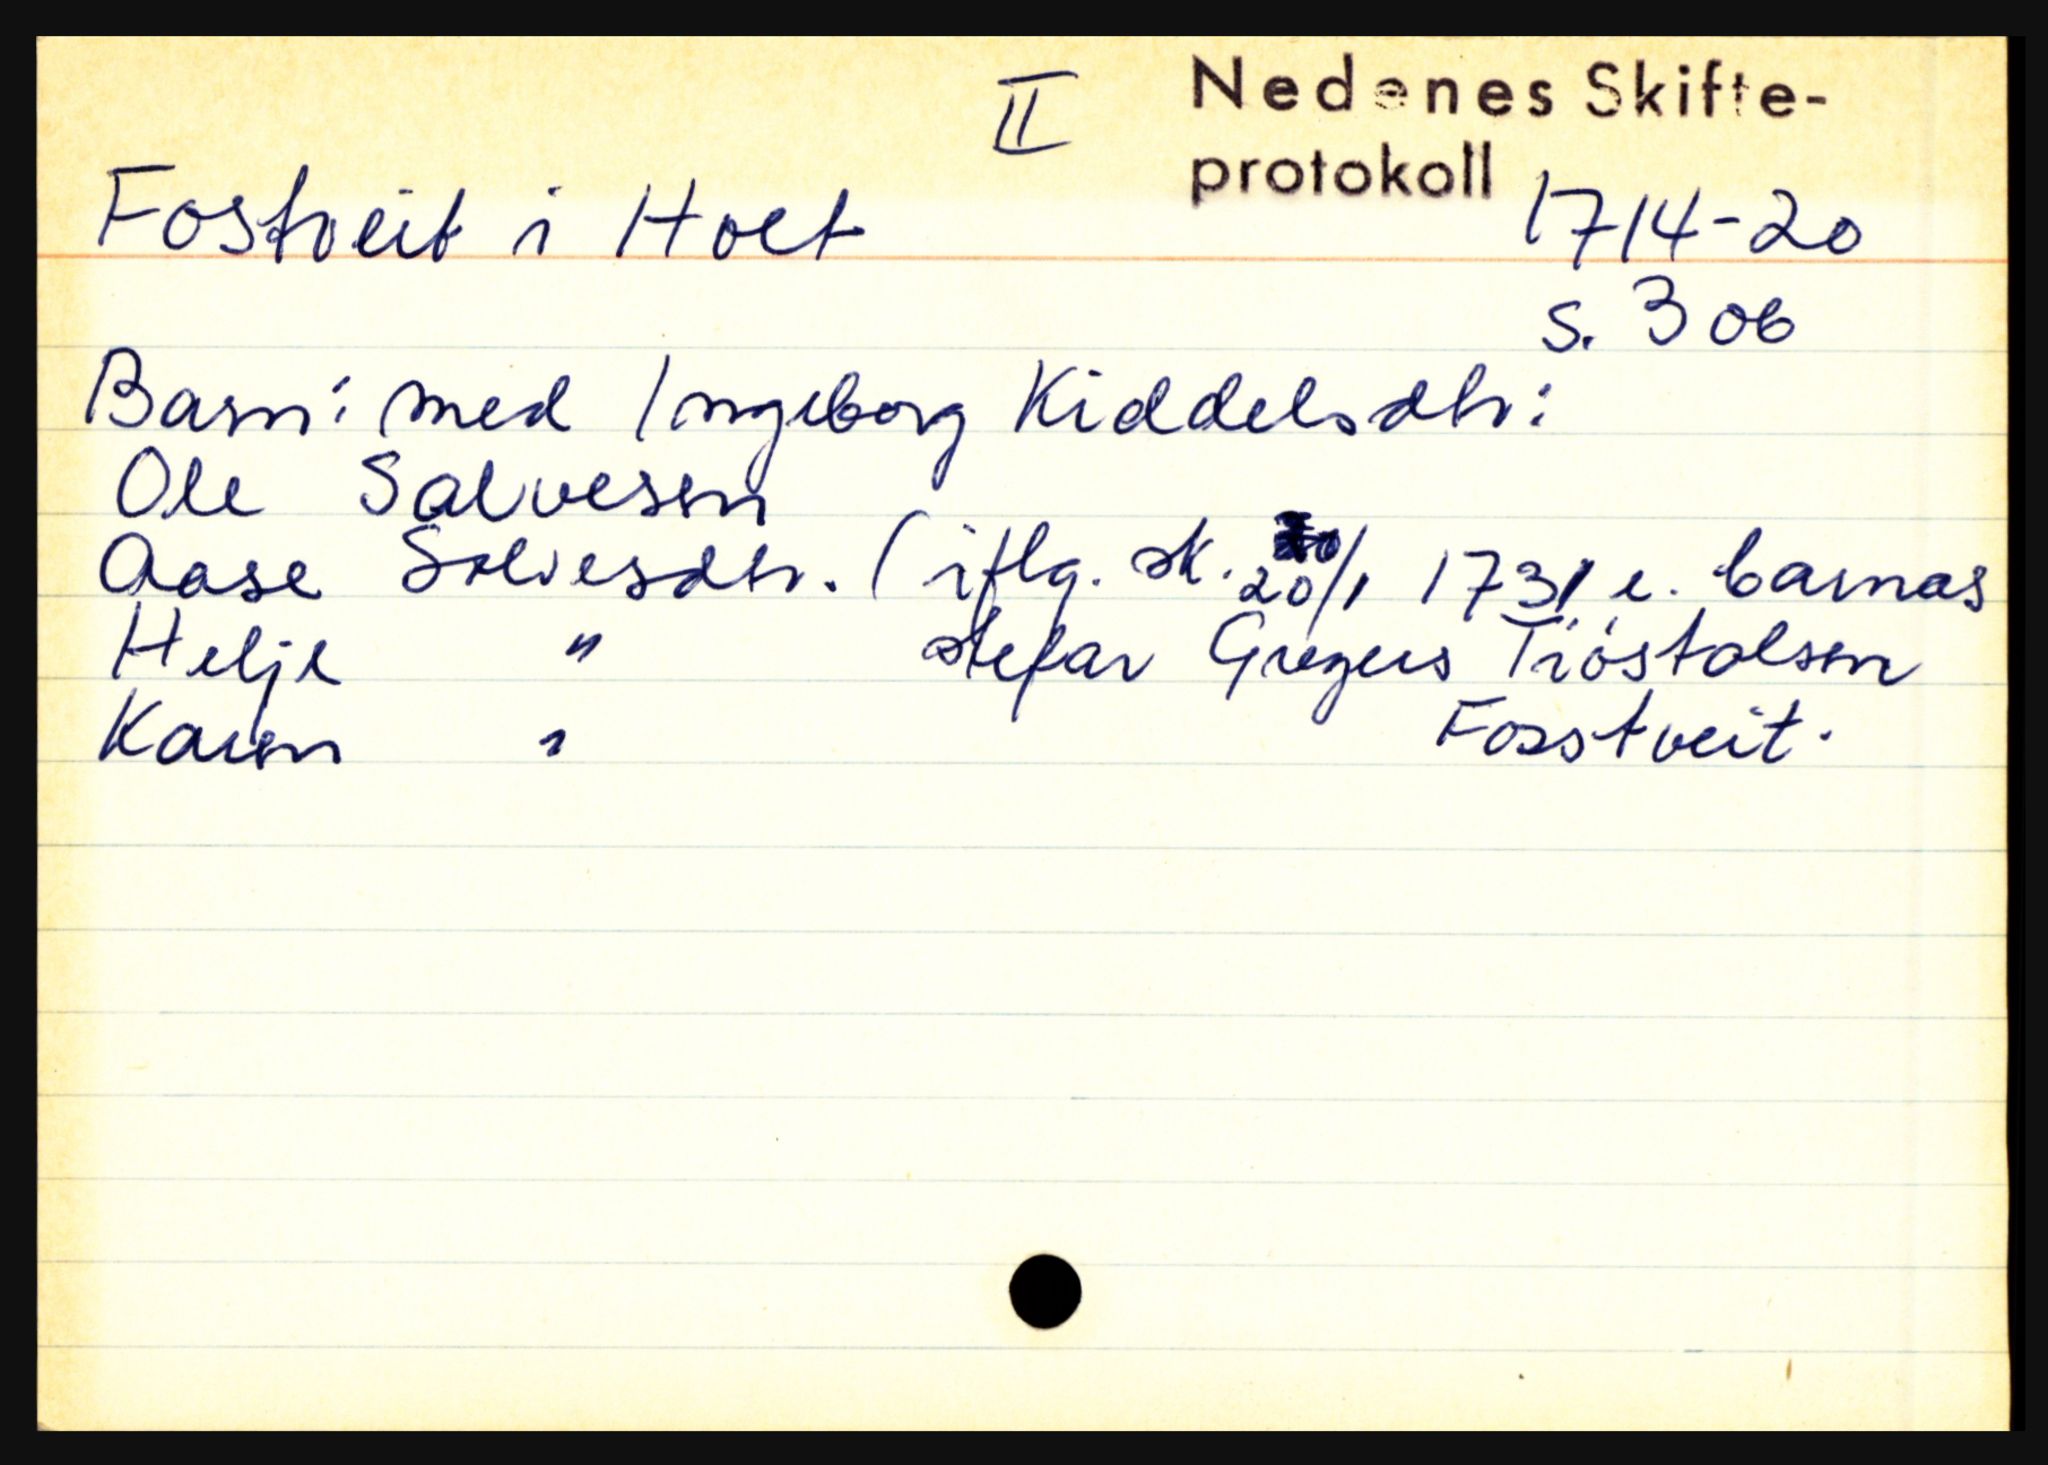 II Nedenes Skifte-
protokoll
Fostveit i Holt 1714-20
s. 306
Barn: med Ingeborg Kiddelsdtr:
Ole Salvesen
Aase Salvesdtr. (iflg. sk. 20/1 1731 e. barnas
Helje " stefar Gregers Tiøstolsen
Karen " Fosstveit.